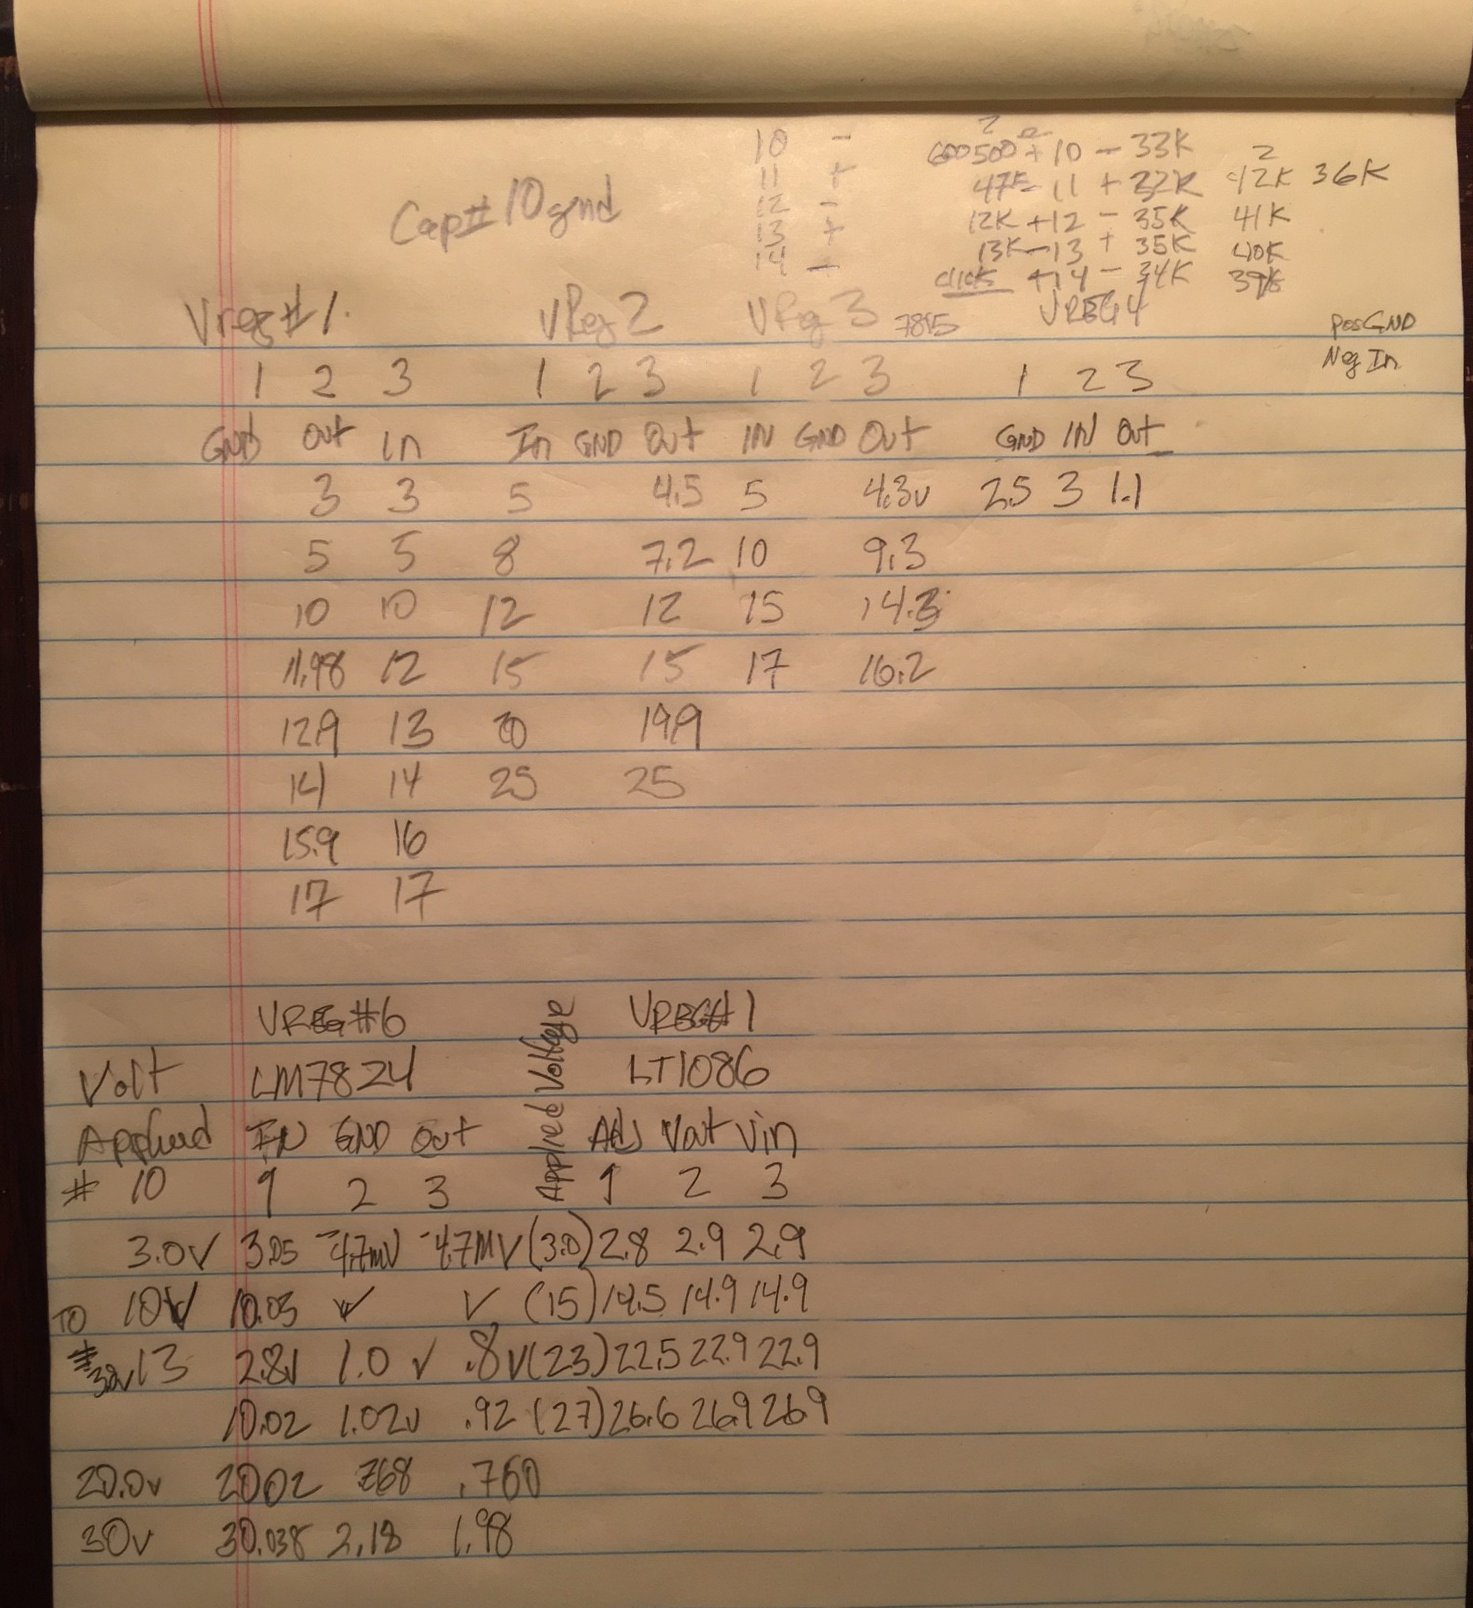 10 -
11 +
12 -
13 +
14 -
2
600 500 + 10 - 33K 2
47K - 11 + 32K 42K 36K
12K + 12 - 35K 41K
13K - 13 + 35K 40K
+ 14 - 34K
Cap# 10 gnd
Vreg#1. VReg 2 VReg 3 7815 VREG4
Pos GND
Neg In
1 2 3 1 2 3 1 2 3 1 2 3
GND Out In In GND Out IN GND Out GND IN Out
3 3 5 4.5 5 4.3v 2.5 3 1.1
5 5 8 7.2 10 9.3
10 10 12 12 15 14.3
11.98 12 15 15 17 16.2
12.9 13 20 19.9
14 14 25 25
15.9 16
17 17
VREG#6 Applied Voltage VREG#1
Volt LM7824 LT1086
Applied IN GND Out Adj Vout Vin
# 10 1 2 3 1 2 3
3.0V 3.05 -4.7mV -4.7MV (3.0) 2.8 2.9 2.9
TO 10V 10.03 ✓ ✓ (15) 14.5 14.9 14.9
# 13 2.8V 1.0 v .8v (23) 22.5 22.9 22.9
3.0v
10.02 1.02v .92 (27) 26.6 26.9 26.9
20.0v 20.02 .768 .760
30v 30.038 2.18 1.98